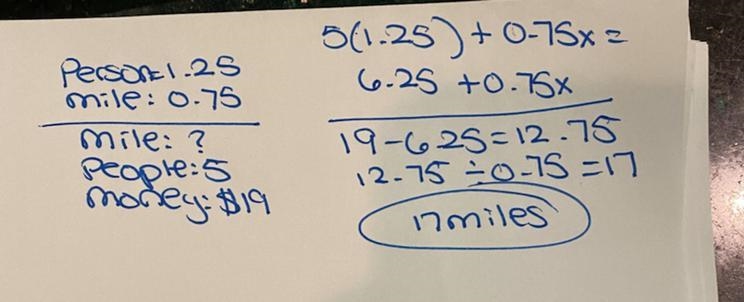 Person: 1.25
mile: 0.75
mile: ?
People: 5
money: $19
5(1.25) + 0.75x =
6.25 + 0.75x
19-6.25=12.75
12.75 ÷ 0.75 = 17
17 miles